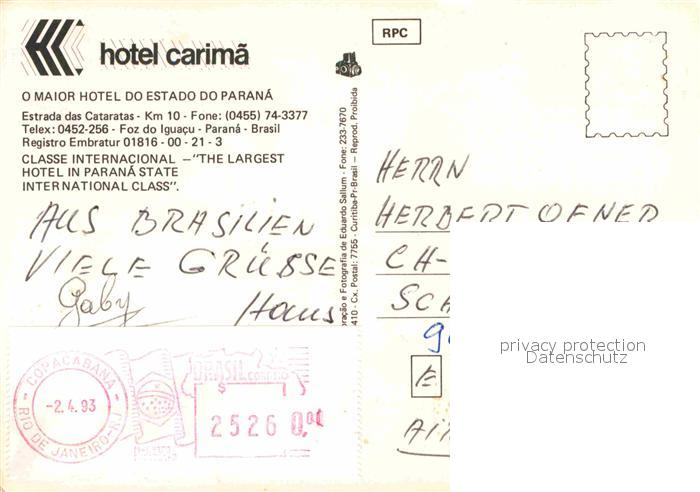 hotel carimã
O MAIOR HOTEL DO ESTADO DO PARANÁ
Estrada das Cataratas - Km 10 - Fone: (0455) 74-3377
Telex: 0452-256 - Foz do Iguaçu - Paraná - Brasil
Registro Embratur 01816 - 00 - 21 - 3
CLASSE INTERNACIONAL –"THE LARGEST
HOTEL IN PARANÁ STATE
INTERNATIONAL CLASS".
AUS BRASILIEN
VIELE GRÜSSE
Gaby Hans
COPACABANA
-2.4.93
RIO DE JANEIRO-RJ
BRASIL CORREIO
2526 0,00
oração e Fotografia de Eduardo Sallum - Fone: 233-7670
410 - Cx. Postal: 7755 - Curitiba-Pr-Brasil — Reprod. Proibida
RPC
HERRN
HERBERT OFNER
CH-
SCH
E
privacy protection
Datenschutz